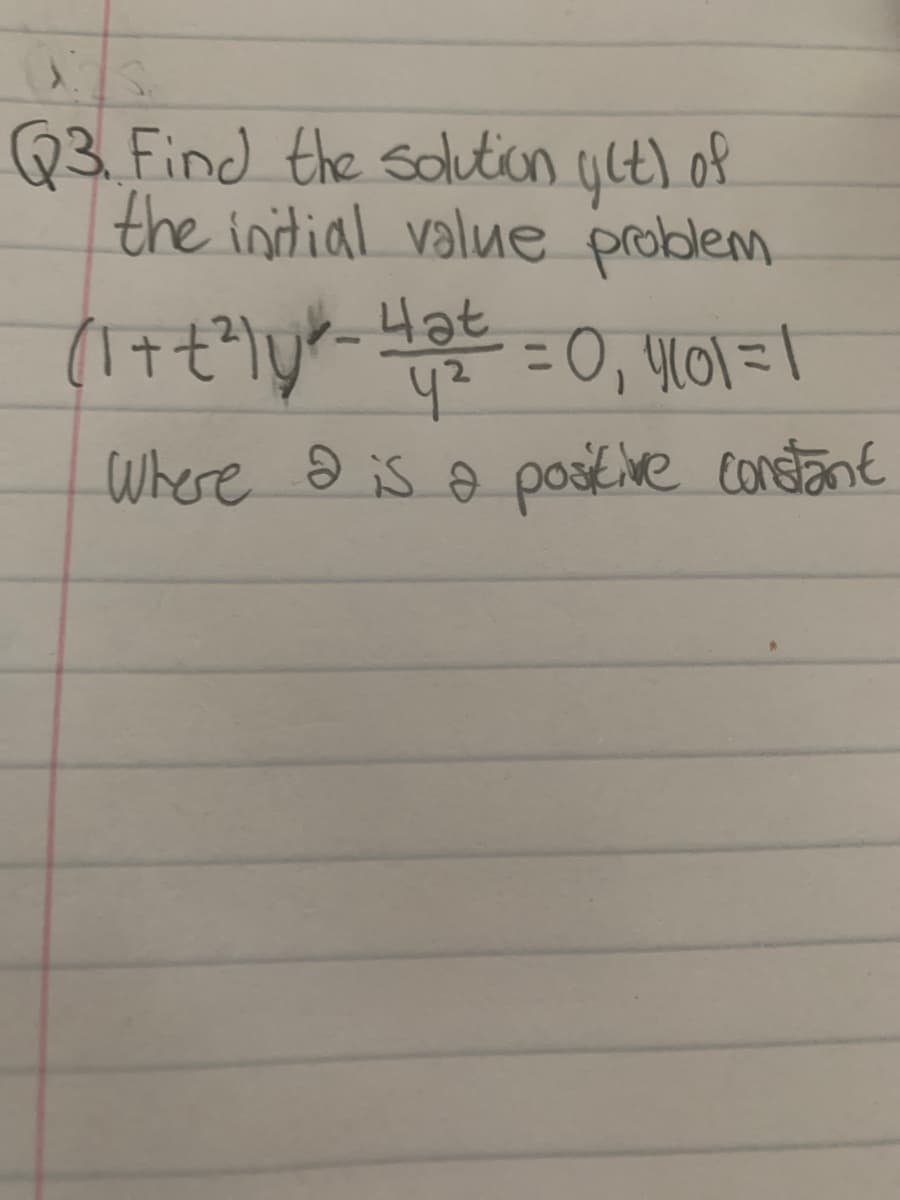 Q3. Find the solution y(t) of
the initial value problem
(1+t²)y' - 4at/y² = 0, y(0)=1
Where a is a positive constant